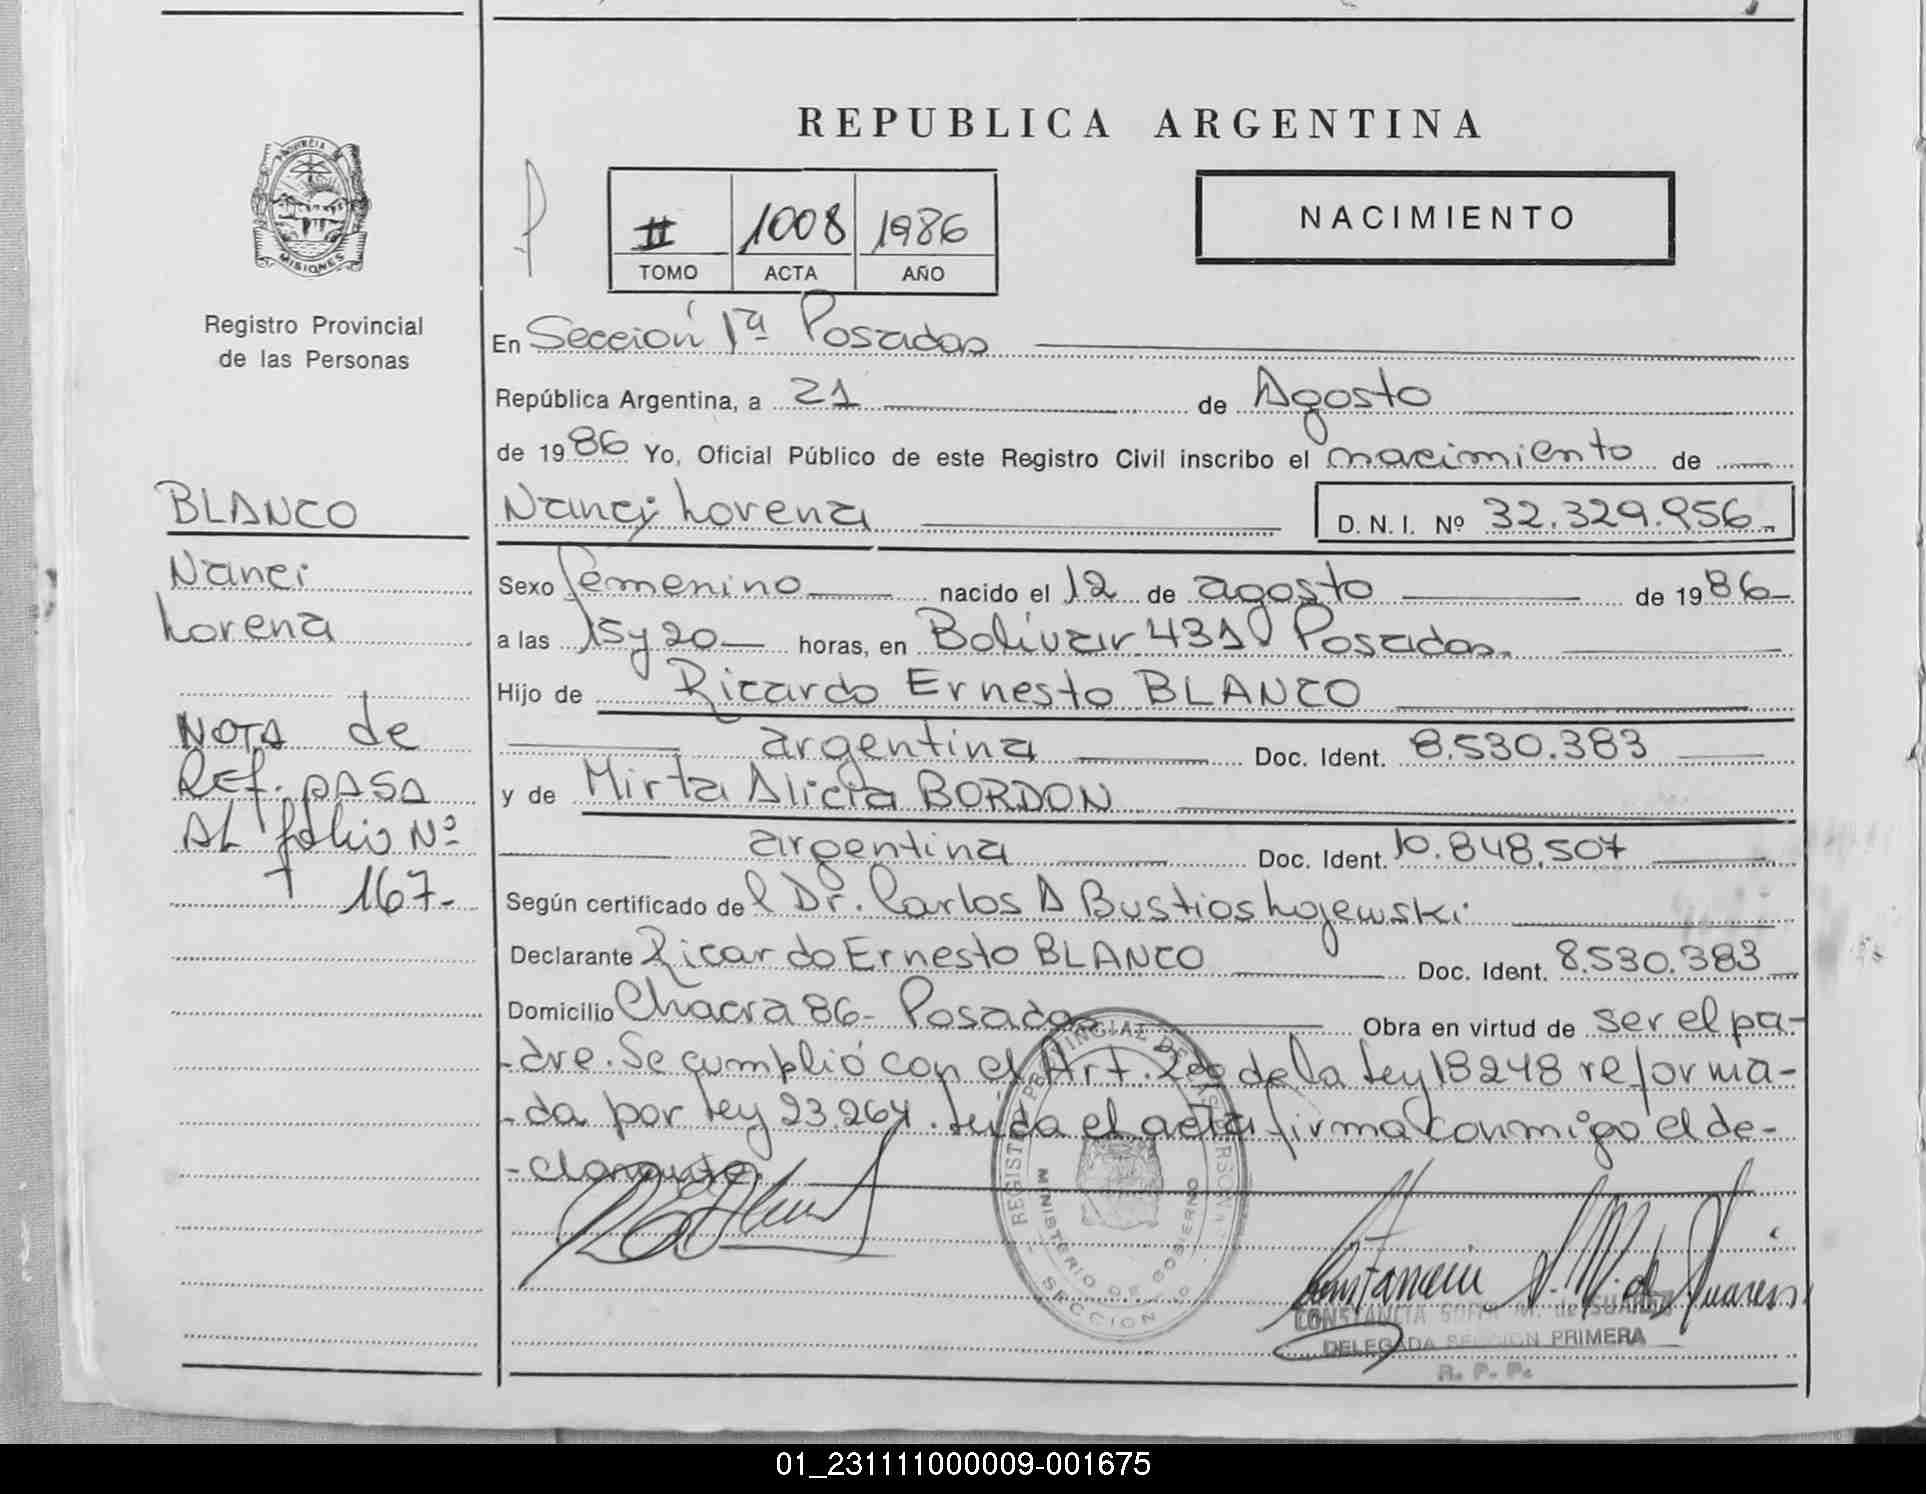 REPUBLICA ARGENTINA
PROVINCIA DE
MISIONES
Registro Provincial
de las Personas
II 1008 1986
TOMO ACTA AÑO
NACIMIENTO
En Sección 1ª Posadas
República Argentina, a 21 de Agosto
de 1986 Yo, Oficial Público de este Registro Civil inscribo el nacimiento de
Nanci Lorena D. N. I. Nº 32.329.956
Sexo femenino nacido el 12 de agosto de 1986
a las 15 y 20 horas, en Bolívar 431 Posadas.
Hijo de Ricardo Ernesto BLANCO
argentina Doc. Ident. 8.530.383
y de Mirta Alicia BORDON
argentina Doc. Ident. 10.848.507
Según certificado del Dr. Carlos A Bustios Lojewski
Declarante Ricardo Ernesto BLANCO Doc. Ident. 8.530.383
Domicilio Chacra 86- Posadas Obra en virtud de ser el pa-
-dre. Se cumplió con el Art. 2do de la Ley 18248 reforma-
-da por Ley 23.264. Leída el acta firma conmigo el de-
-clarante.
BLANCO
Nanci
Lorena
NOTA de
REF. PASA
AL folio Nº
167-
REGISTRO PROVINCIAL DE LAS PERSONAS
MINISTERIO DE GOBIERNO
SECCION
Constancia S. M. de Suarez
CONSTANCIA SOFIA M. de SUAREZ
DELEGADA SECCION PRIMERA
R. P. P.
01_231111000009-001675